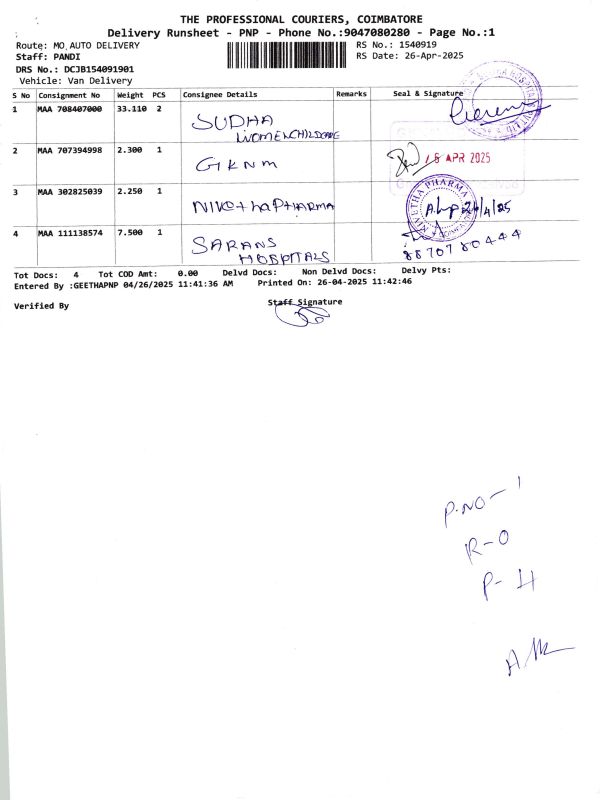 THE PROFESSIONAL COURIERS, COIMBATORE
Delivery Runsheet - PNP - Phone No.:9047080280 - Page No.:1
Route: MO AUTO DELIVERY
RS No.: 1540919
Staff: PANDI
RS Date: 26-Apr-2025
DRS No.: DCJB154091901
Vehicle: Van Delivery
S No Consignment No Weight PCS Consignee Details Remarks Seal & Signature
1 MAA 708407000 33.110 2 SUDHA
WOMENCHILDCARE
2 MAA 707394998 2.300 1 GKNM
APR 2025
3 MAA 302825039 2.250 1 NIKethaPHARMA
NIVETHA PHARMA
4 MAA 111138574 7.500 1 SARANS
HOSPITALS
8870780444
Tot Docs: 4 Tot COD Amt: 0.00 Delvd Docs: Non Delvd Docs: Delvy Pts:
Entered By :GEETHAPNP 04/26/2025 11:41:36 AM Printed On: 26-04-2025 11:42:46
Verified By
Staff Signature
P.NO-1
R-0
P-4